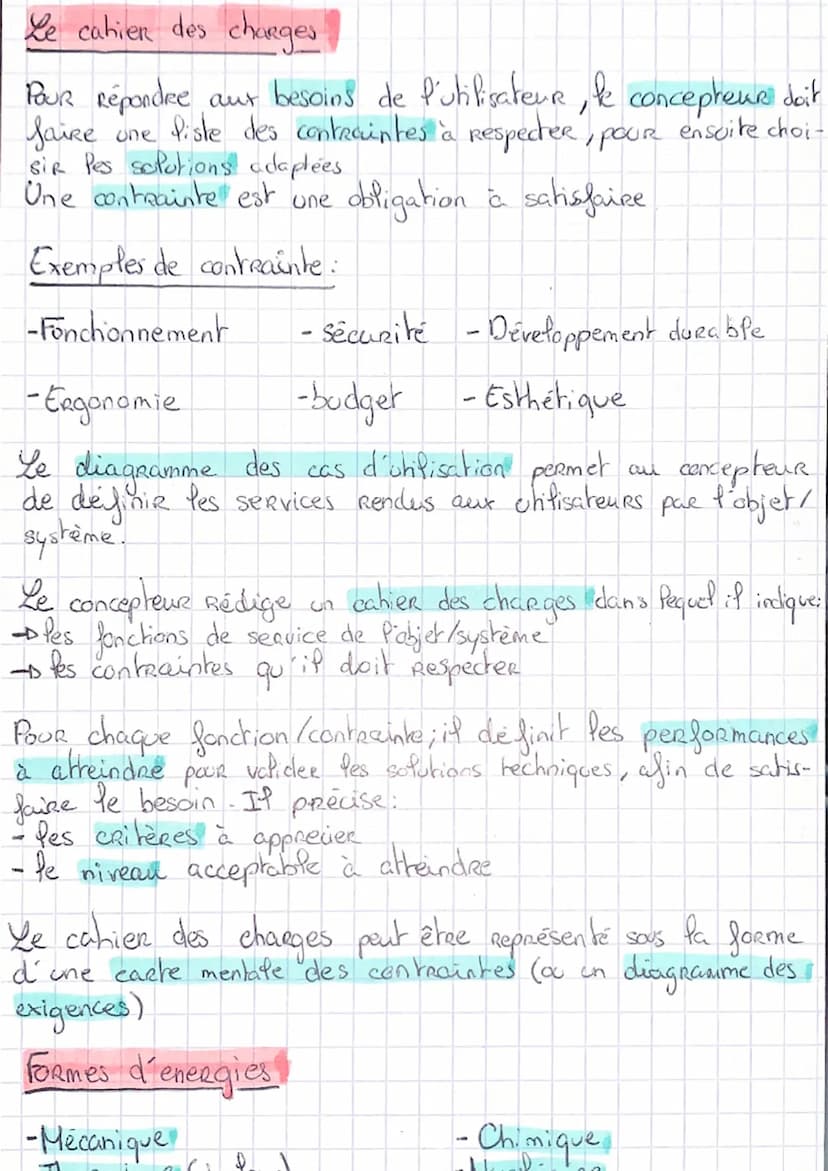 Le cahier des charges
Pour répondre aux besoins de l'utilisateur, le concepteur doit
faire une liste des contraintes à respecter, pour ensuite choi-
sir les solutions adaptées
Une contrainte est une obligation à satisfaire
Exemples de contrainte :
-Fonctionnement - sécurité - Développement durable
-Ergonomie -budget - Esthétique
Le diagramme des cas d'utilisation permet au concepteur
de définir les services rendus aux utilisateurs par l'objet/
système.
Le concepteur rédige un cahier des charges dans lequel il indique:
→ les fonctions de service de l'objet/système
→ les contraintes qu'il doit respecter
Pour chaque fonction/contrainte; il définit les performances
à atteindre pour valider les solutions techniques, afin de satis-
faire le besoin. Il précise:
- les critères à apprecier
- le niveau acceptable à atteindre
Le cahier des charges peut être représenté sous la forme
d'une carte mentale des contraintes (ou un diagramme des
exigences)
Formes d'energies
-Mécanique - Chimique